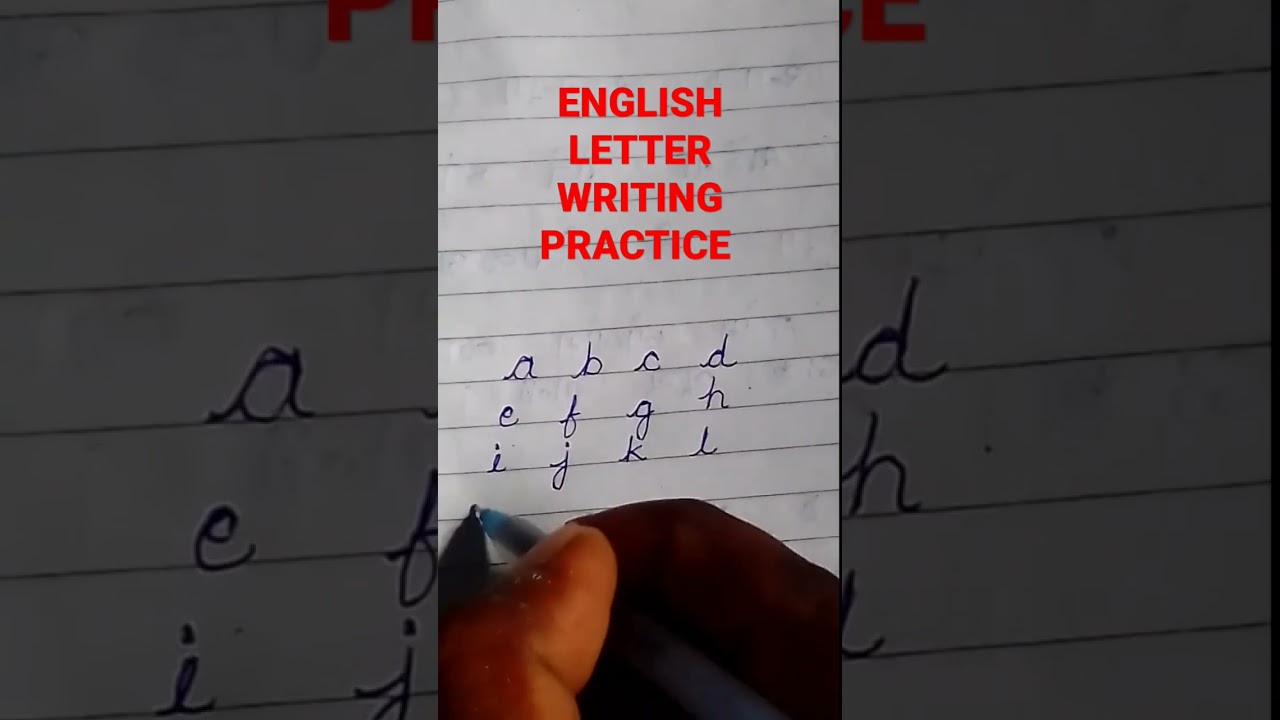 ENGLISH
LETTER
WRITING
PRACTICE
a b c d
e f g h
i j k l